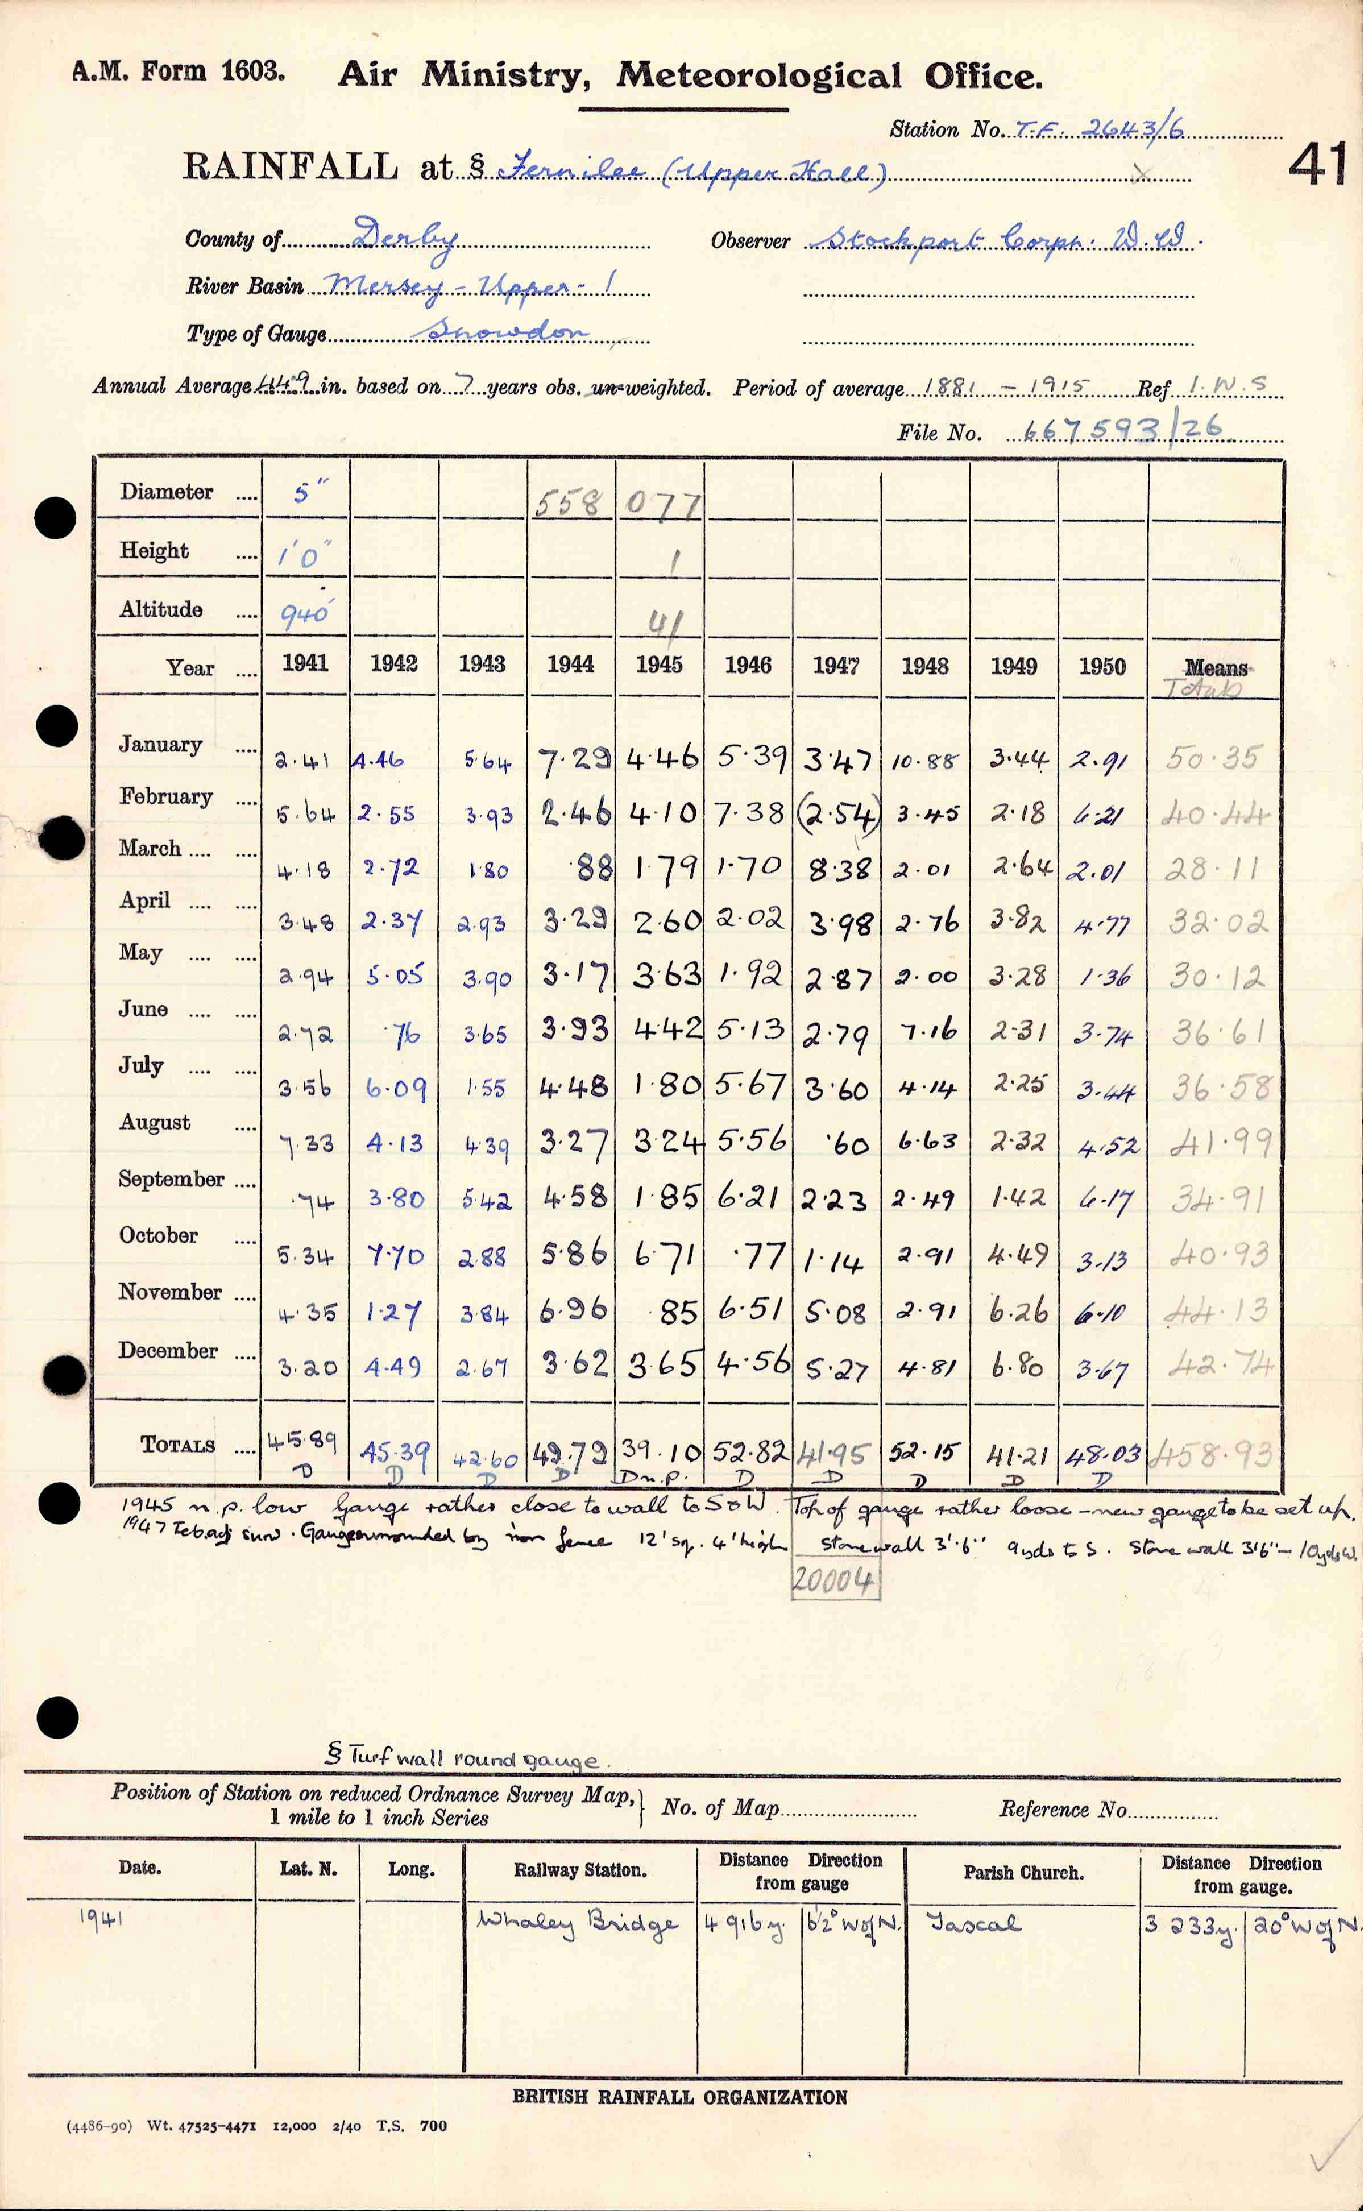 A.M. Form 1603. Air Ministry, Meteorological Office.
Station No. T.F. 2643/6
41
RAINFALL at § Fernilee (Upper Hall)
County of Derby Observer Stockport Corpn. W.W.
River Basin Mersey - Upper - 1
Type of Gauge Snowdon
Annual Average 44.9 in. based on 7 years obs. un-weighted. Period of average 1881 - 1915 Ref I.W.S
File No. 667593/26
Diameter .... 5" 558 077
Height .... 1'0" 1
Altitude .... 940' 41
Year .... 1941 1942 1943 1944 1945 1946 1947 1948 1949 1950 Means
Totals
January .... 2.41 4.46 5.64 7.29 4.46 5.39 3.47 10.88 3.44 2.91 50.35
February .... 5.64 2.55 3.93 2.46 4.10 7.38 (2.54) 3.45 2.18 6.21 40.44
March .... .... 4.18 2.72 1.80 .88 1.79 1.70 8.38 2.01 2.64 2.01 28.11
April .... .... 3.48 2.37 2.93 3.29 2.60 2.02 3.98 2.76 3.82 4.77 32.02
May .... .... 2.94 5.05 3.90 3.17 3.63 1.92 2.87 2.00 3.28 1.36 30.12
June .... .... 2.72 .76 3.65 3.93 4.42 5.13 2.79 7.16 2.31 3.74 36.61
July .... .... 3.56 6.09 1.55 4.48 1.80 5.67 3.60 4.14 2.25 3.44 36.58
August .... 7.33 4.13 4.39 3.27 3.24 5.56 .60 6.63 2.32 4.52 41.99
September .... .74 3.80 5.42 4.58 1.85 6.21 2.23 2.49 1.42 6.17 34.91
October .... 5.34 7.70 2.88 5.86 6.71 .77 1.14 2.91 4.49 3.13 40.93
November .... 4.35 1.27 3.84 6.96 .85 6.51 5.08 2.91 6.26 6.10 44.13
December .... 3.20 4.49 2.67 3.62 3.65 4.56 5.27 4.81 6.80 3.67 42.74
TOTALS .... 45.89 45.39 42.60 49.79 39.10 52.82 41.95 52.15 41.21 48.03 458.93
D D D D D n.p. D D D D D
1945 n.p. low Gauge rather close to wall to S & W. Top of gauge rather loose - new gauge to be set up.
1947 Feb. adj snow. Gauge surrounded by iron fence 12' sq. 4' high Stone wall 3'.6" 9yds to S. Stone wall 3'6" - 10yds W.
20004
§ Turf wall round gauge.
Position of Station on reduced Ordnance Survey Map, } No. of Map Reference No.
1 mile to 1 inch Series
Date. Lat. N. Long. Railway Station. Distance Direction from gauge Parish Church. Distance Direction from gauge.
1941 Whaley Bridge 4 916y. 62° W of N. Taxcal 3 233y. 20° W of N.
BRITISH RAINFALL ORGANIZATION
(4486-90) Wt. 47525-4471 12,000 2/40 T.S. 700